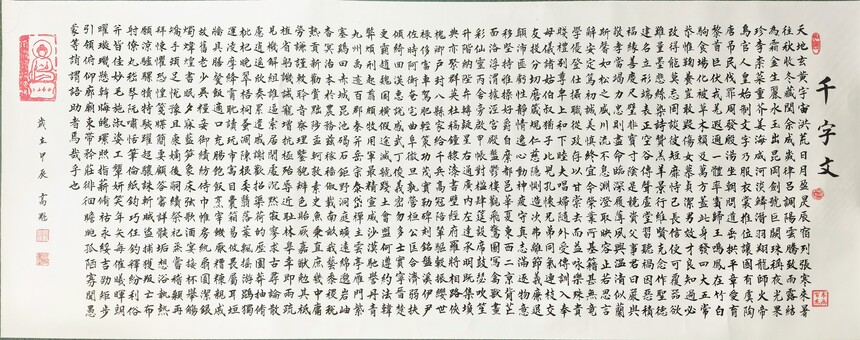 千字文
天地玄黃宇宙洪荒日月盈昃辰宿列張寒來暑
往秋收冬藏閏餘成歲律呂調陽雲騰致雨露結
為霜金生麗水玉出崑岡劍號巨闕珠稱夜光果
珍李柰菜重芥薑海鹹河淡鱗潛羽翔龍師火帝
鳥官人皇始制文字乃服衣裳推位讓國有虞陶
唐弔民伐罪周發殷湯坐朝問道垂拱平章愛育
黎首臣伏戎羌遐邇一體率賓歸王鳴鳳在竹白
駒食場化被草木賴及萬方蓋此身髮四大五常
恭惟鞠養豈敢毀傷女慕貞潔男效才良知過必
改得能莫忘罔談彼短靡恃己長信使可覆器欲
難量墨悲絲染詩讚羔羊景行維賢克念作聖德
建名立形端表正空谷傳聲虛堂習聽禍因惡積
福緣善慶尺璧非寶寸陰是競資父事君曰嚴與
敬孝當竭力忠則盡命臨深履薄夙興溫凊似蘭
斯馨如松之盛川流不息淵澄取映容止若思言
辭安定篤初誠美慎終宜令榮業所基籍甚無竟
學優登仕攝職從政存以甘棠去而益詠樂殊貴
賤禮別尊卑上和下睦夫唱婦隨外受傅訓入奉
母儀諸姑伯叔猶子比兒孔懷兄弟同氣連枝交
友投分切磨箴規仁慈隱惻造次弗離節義廉退
顛沛匪虧性靜情逸心動神疲守真志滿逐物意
移堅持雅操好爵自縻都邑華夏東西二京背芒
面洛浮渭據涇宮殿盤鬱樓觀飛驚圖寫禽獸畫
彩仙靈丙舍傍啟甲帳對楹肆筵設席鼓瑟吹笙
升階納陛弁轉疑星右通廣內左達承明既集墳
典亦聚群英杜稿鍾隸漆書壁經府羅將相路俠
槐卿戶封八縣家給千兵高冠陪輦驅轂振纓世
祿侈富車駕肥輕策功茂實勒碑刻銘磻溪伊尹
佐時阿衡奄宅曲阜微旦孰營桓公匡合濟弱扶
傾綺迴漢惠說感武丁俊乂密勿多士寔寧晉楚
更霸趙魏困橫假途滅虢踐土會盟何遵約法韓
弊煩刑起翦頗牧用軍最精宣威沙漠馳譽丹青
九州禹跡百郡秦并嶽宗泰岱禪主云亭雁門紫
塞雞田赤城昆池碣石鉅野洞庭曠遠綿邈巖岫
杳冥治本於農務茲稼穡俶載南畝我藝黍稷稅
熟貢新勸賞黜陟孟軻敦素史魚秉直庶幾中庸
勞謙謹敕聆音察理鑒貌辨色貽厥嘉猷勉其祗
植省躬譏誡寵增抗極殆辱近恥林皋幸即兩疏
見機解組誰逼索居閒處沉默寂寥求古尋論散
慮逍遙欣奏累遣慼謝歡招渠荷的歷園莽抽條
枇杷晚翠梧桐蚤凋陳根委翳落葉飄颻遊鵾獨
運凌摩絳霄耽讀玩市寓目囊箱易輶攸畏屬耳垣
牆具膳餐飯適口充腸飽飫烹宰飢厭糟糠親戚
故舊老少異糧妾御績紡侍巾帷房紈扇圓潔銀
燭煒煌晝眠夕寐藍筍象床弦歌酒讌接杯舉觴
矯手頓足悅豫且康嫡後嗣續祭祀烝嘗稽顙再
拜悚懼恐惶牋牒簡要顧答審詳骸垢想浴執熱
願涼驢騾犢特駭躍超驤誅斬賊盜捕獲叛亡布
射僚丸嵇琴阮嘯恬筆倫紙鈞巧任釣釋紛利俗
並皆佳妙毛施淑姿工顰妍笑年矢每催曦暉朗
曜璇璣懸斡晦魄環照指薪修祜永綏吉劭矩步
引領俯仰廊廟束帶矜莊徘徊瞻眺孤陋寡聞愚
蒙等誚謂語助者焉哉乎也
歲在甲辰 高